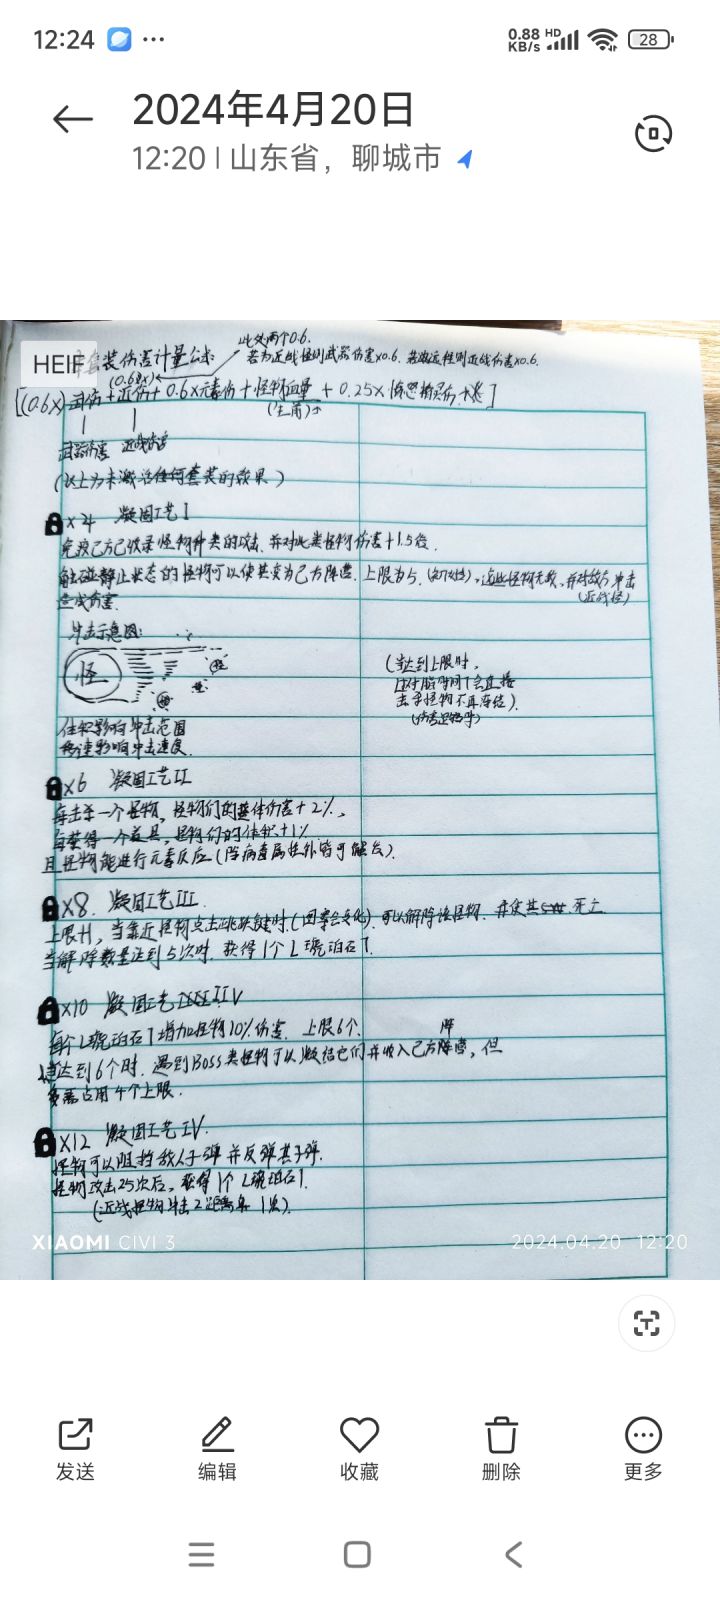 12:24 ...
0.88 KB/s HD 28
2024年4月20日
12:20 | 山东省，聊城市
HEIF
此处两个0.6.
若为近战怪则武器伤害×0.6. 若为远程则近战伤害×0.6.
套装伤害计量公式:
(0.6x)
[(0.6×)武伤+近伤+0.6×元素伤+怪物血量+0.25×
武器伤害 近战伤害
(以上为未激活任何套装的效果)
×4 凝固工艺I
免疫己方已收录怪物种类的攻击，并对此类怪物伤害+1.5倍.
触碰静止状态的怪物可以使其变为己方阵营. 上限为5. 这些怪物无敌，并对敌方冲击
造成伤害.
(近战怪)
冲击示意图:
怪
(当达到上限时，
击杀怪物不再冻结).
体积影响冲击范围
移速影响冲击速度.
×6 凝固工艺II
每击杀一个怪物，怪物们的整体伤害+2%，
每获得一个道具，怪物们的体积+1%
且怪物能进行元素反应(除病毒属性外皆可触发).
×8. 凝固工艺III
上限+1，当靠近怪物点击跳跃键时 可以解除该怪物. 并使其 死亡
当解除数量达到5次时. 获得1个L琥珀石T.
×10 凝固工艺 IV
每个L琥珀石T增加怪物10%伤害. 上限6个.
当达到6个时. 遇到Boss类怪物可以 它们并收入己方阵营，但
需占用4个上限.
×12 凝固工艺IV.
怪物可以阻挡敌人子弹并反弹其子弹.
怪物攻击25次后，获得1个L琥珀石T.
(近战怪物冲击2距离算1次).
XIAOMI CIVI 3
2024.04.20 12:20
发送
编辑
收藏
删除
更多